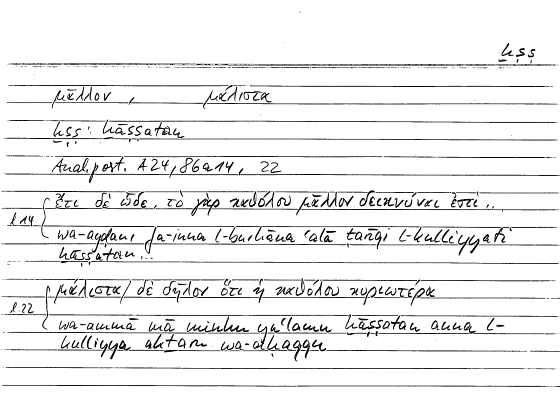 h̲ṣṣ
μᾶλλον , μάλιστα
h̲ṣṣ: h̲āṣṣatan
Anal. post. A 24, 86a14, 22
l.14 ἔτι δὲ ὧδε. τὸ γὰρ καθόλου μᾶλλον δεικνύναι ἐστί..
wa-ayḍan, fa-inna l-burhāna ʿalā ṭarīqi l-kulliyyati
h̲āṣṣatan...
l.22 μάλιστα/ δὲ δῆλον ὅτι ἡ καθόλου κυριωτέρα
wa-ammā mā minhu yaʿlamu h̲āṣṣatan anna l-
kulliyya akt̲aru wa-aḥaqqu